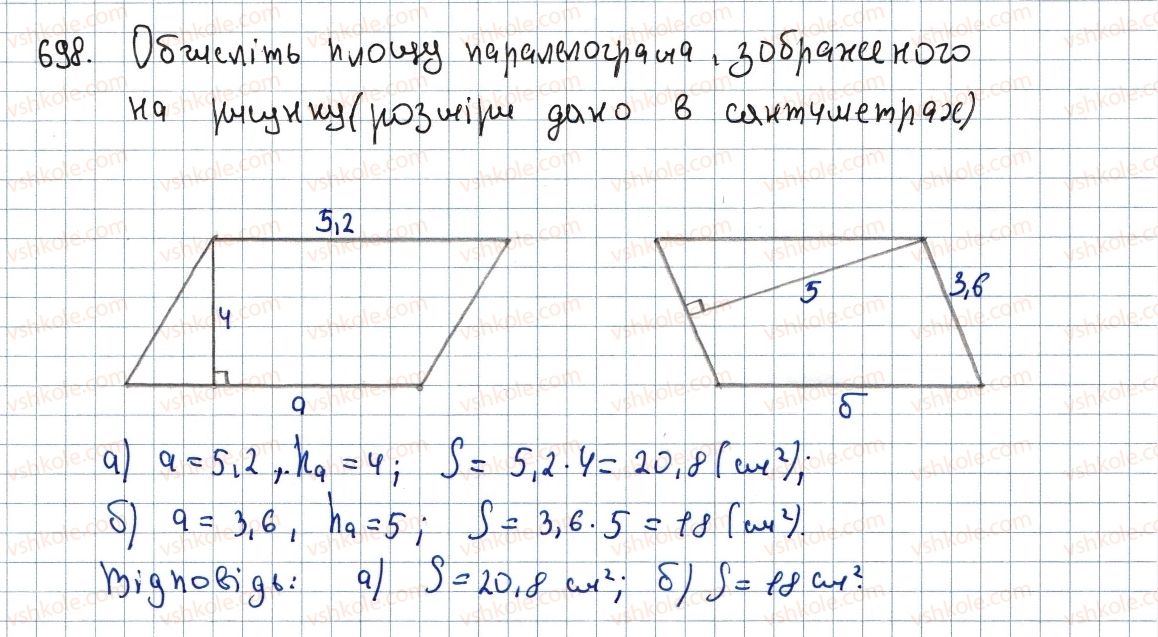 698. Обчисліть площу паралелограма, зображеного
на рисунку (розміри дано в сантиметрах)
5,2
4
5
3,6
а
б
а) a = 5,2, hₐ = 4; S = 5,2 · 4 = 20,8 (см²);
б) a = 3,6, hₐ = 5; S = 3,6 · 5 = 18 (см²).
Відповідь: а) S = 20,8 см²; б) S = 18 см².